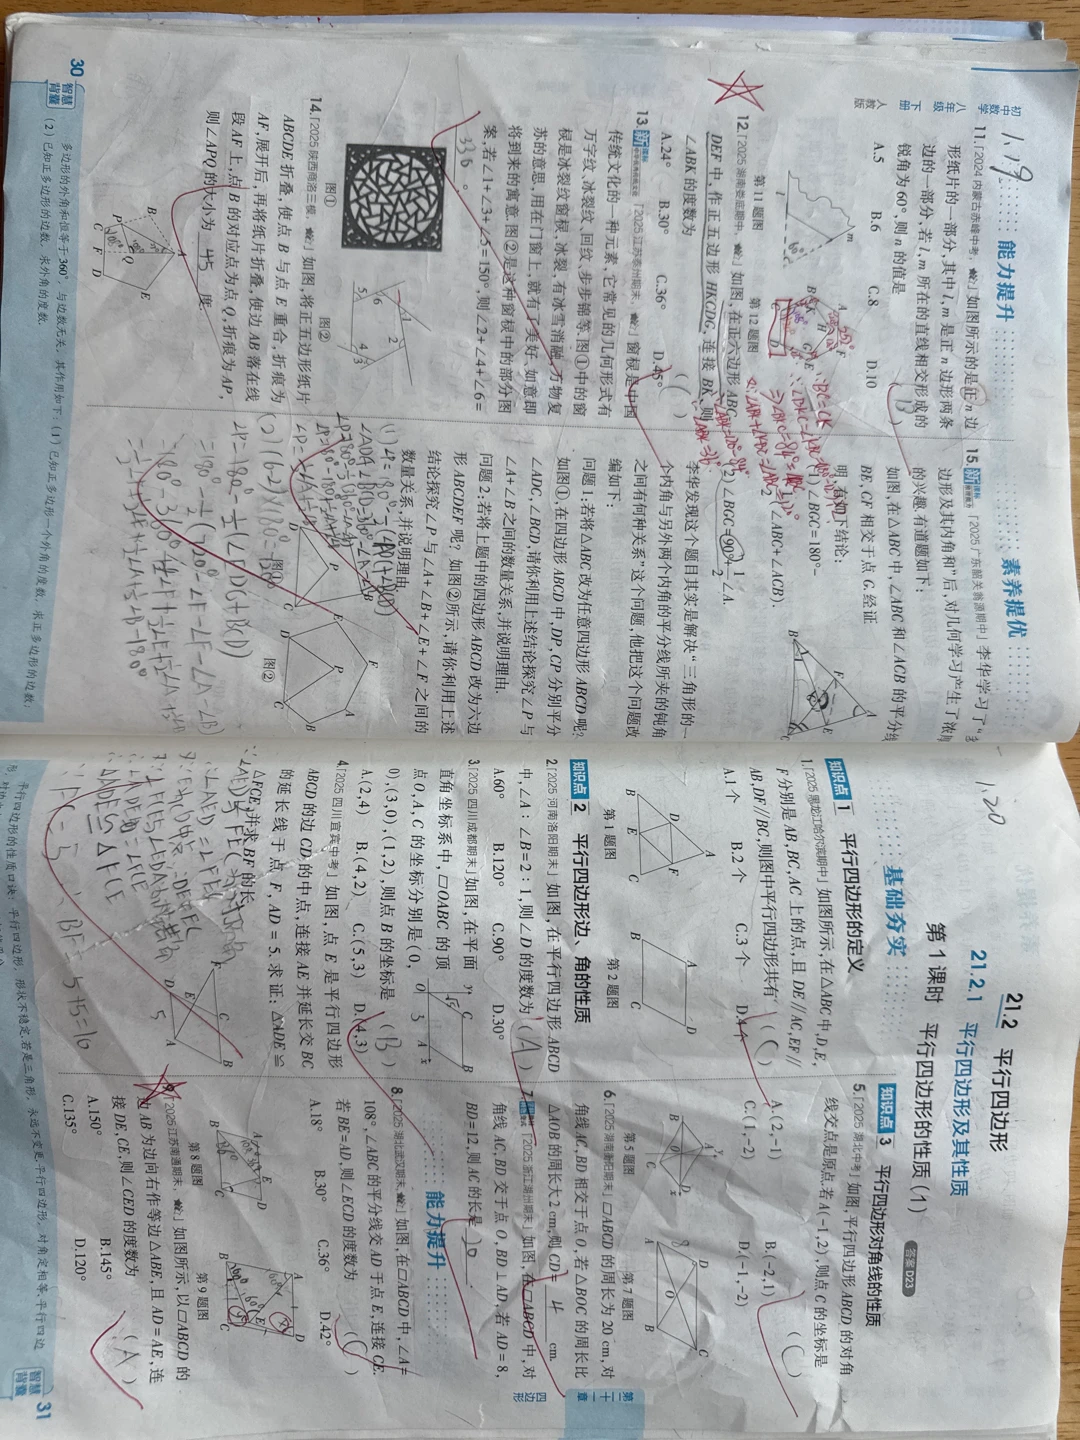 初中数学 八年级 下册 人教版
1.19
能力提升
11.「2024内蒙古赤峰中考」如图所示的是正n边
形纸片的一部分,其中l,m是正n边形两条
边的一部分,若l,m所在的直线相交形成的
锐角为60°,则n的值是
A.5 B.6 C.8 D.10
第11题图 第12题图
12.「2025湖南娄底期中」如图,在正六边形ABC-
DEF中,作正五边形HKCDG,连接BK,则
∠ABK的度数为
A.24° B.30° C.36° D.45°
13.新课标「2025江苏泰州期末」窗棂是中国
传统文化的一种元素,它常见的几何形式有
万字纹、冰裂纹、回纹、步步锦等,图①中的窗
棂是冰裂纹窗棂,冰裂,有冰雪消融,万物复
苏的意思,用在门窗上,就有了美好、如意即
将到来的寓意.图②是这种窗棂中的部分图
案,若∠1+∠3+∠5=150°,则∠2+∠4+∠6=
336 °.
图① 图②
14.「2025陕西商洛三模」如图,将正五边形纸片
ABCDE折叠,使点B与点E重合,折痕为
AF,展开后,再将纸片折叠,使边AB落在线
段AF上,点B的对应点为点Q,折痕为AP,
则∠APQ的大小为 45 度.
素养提优
15.新课标「2025广东韶关翁源期中」李华学习了“
边形及其内角和”后,对几何学习产生了浓
的兴趣,有道题如下:
如图,在△ABC中,∠ABC和∠ACB的平分线
BE,CF相交于点G.经证
明,有如下结论:
(1)∠BGC=180°-
1/2(∠ABC+∠ACB).
(2)∠BGC=90°+1/2∠A.
李华发现这个题目其实是解决“三角形的一
个内角与另外两个内角的平分线所夹的钝角
之间有何种关系”这个问题,他把这个问题改
编如下:
问题1:若将△ABC改为任意四边形ABCD呢?
如图①,在四边形ABCD中,DP,CP分别平分
∠ADC,∠BCD,请你利用上述结论探究∠P与
∠A+∠B之间的数量关系,并说明理由.
问题2:若将上题中的四边形ABCD改为六边
形ABCDEF呢?如图②所示,请你利用上述
结论探究∠P与∠A+∠B+∠E+∠F之间的
数量关系,并说明理由.
图① 图②
30 智慧背囊
多边形的外角和恒等于360°,与边数无关.其作用如下:(1)已知正多边形一个外角的度数,求正多边形的边数;
(2)已知正多边形的边数,求外角的度数.
1.20
21.2 平行四边形
21.2.1 平行四边形及其性质
第1课时 平行四边形的性质(1)
答案D23
基础夯实
知识点1 平行四边形的定义
1.「2025黑龙江哈尔滨期中」如图所示,在△ABC中,D,E,
F分别是AB,BC,AC上的点,且DE∥AC,EF∥
AB,DF∥BC,则图中平行四边形共有 (C)
A.1个 B.2个 C.3个 D.4个
第1题图 第2题图
知识点2 平行四边形边、角的性质
2.「2025河南洛阳期末」如图,在平行四边形ABCD
中,∠A:∠B=2:1,则∠D的度数为 (A)
A.60° B.120° C.90° D.30°
3.「2025四川成都期末」如图,在平面
直角坐标系中,□OABC的顶
点O,A,C的坐标分别是(0,
0),(3,0),(1,2),则点B的坐标是 (B)
A.(2,4) B.(4,2) C.(5,3) D.(4,3)
4.「2025四川宜宾中考」如图,点E是平行四边形
ABCD的边CD的中点,连接AE并延长交BC
的延长线于点F,AD=5.求证:△ADE≌
△FCE,并求BF的长.
BF=5+5=10
知识点3 平行四边形对角线的性质
5.「2025湖北中考」如图,平行四边形ABCD的对角
线交点是原点.若A(-1,2),则点C的坐标是
(C)
A.(2,-1) B.(-2,1)
C.(1,-2) D.(-1,-2)
第5题图 第7题图
6.「2025湖南衡阳期末」□ABCD的周长为20 cm,对
角线AC,BD相交于点O,若△BOC的周长比
△AOB的周长大2 cm,则CD= 4 cm.
7.「2025浙江湖州期末」如图,在□ABCD中,对
角线AC,BD交于点O,BD⊥AD,若AD=8,
BD=12,则AC的长是
能力提升
8.「2025湖北武汉期末」如图,在□ABCD中,∠A=
108°,∠ABC的平分线交AD于点E,连接CE.
若BE=AD,则∠ECD的度数为 (C)
A.18° B.30° C.36° D.42°
第8题图 第9题图
9.「2025江苏南通期末」如图所示,以□ABCD的
边AB为边向右作等边△ABE,且AD=AE,连
接DE,CE,则∠CED的度数为 (A)
A.150° B.145°
C.135° D.120°
第二十一章 四边形
平行四边形的性质口诀:平行四边形,形状不稳定.若是三角形,永远不变更.平行四边形,对角定相等.平行四边
智慧背囊 31